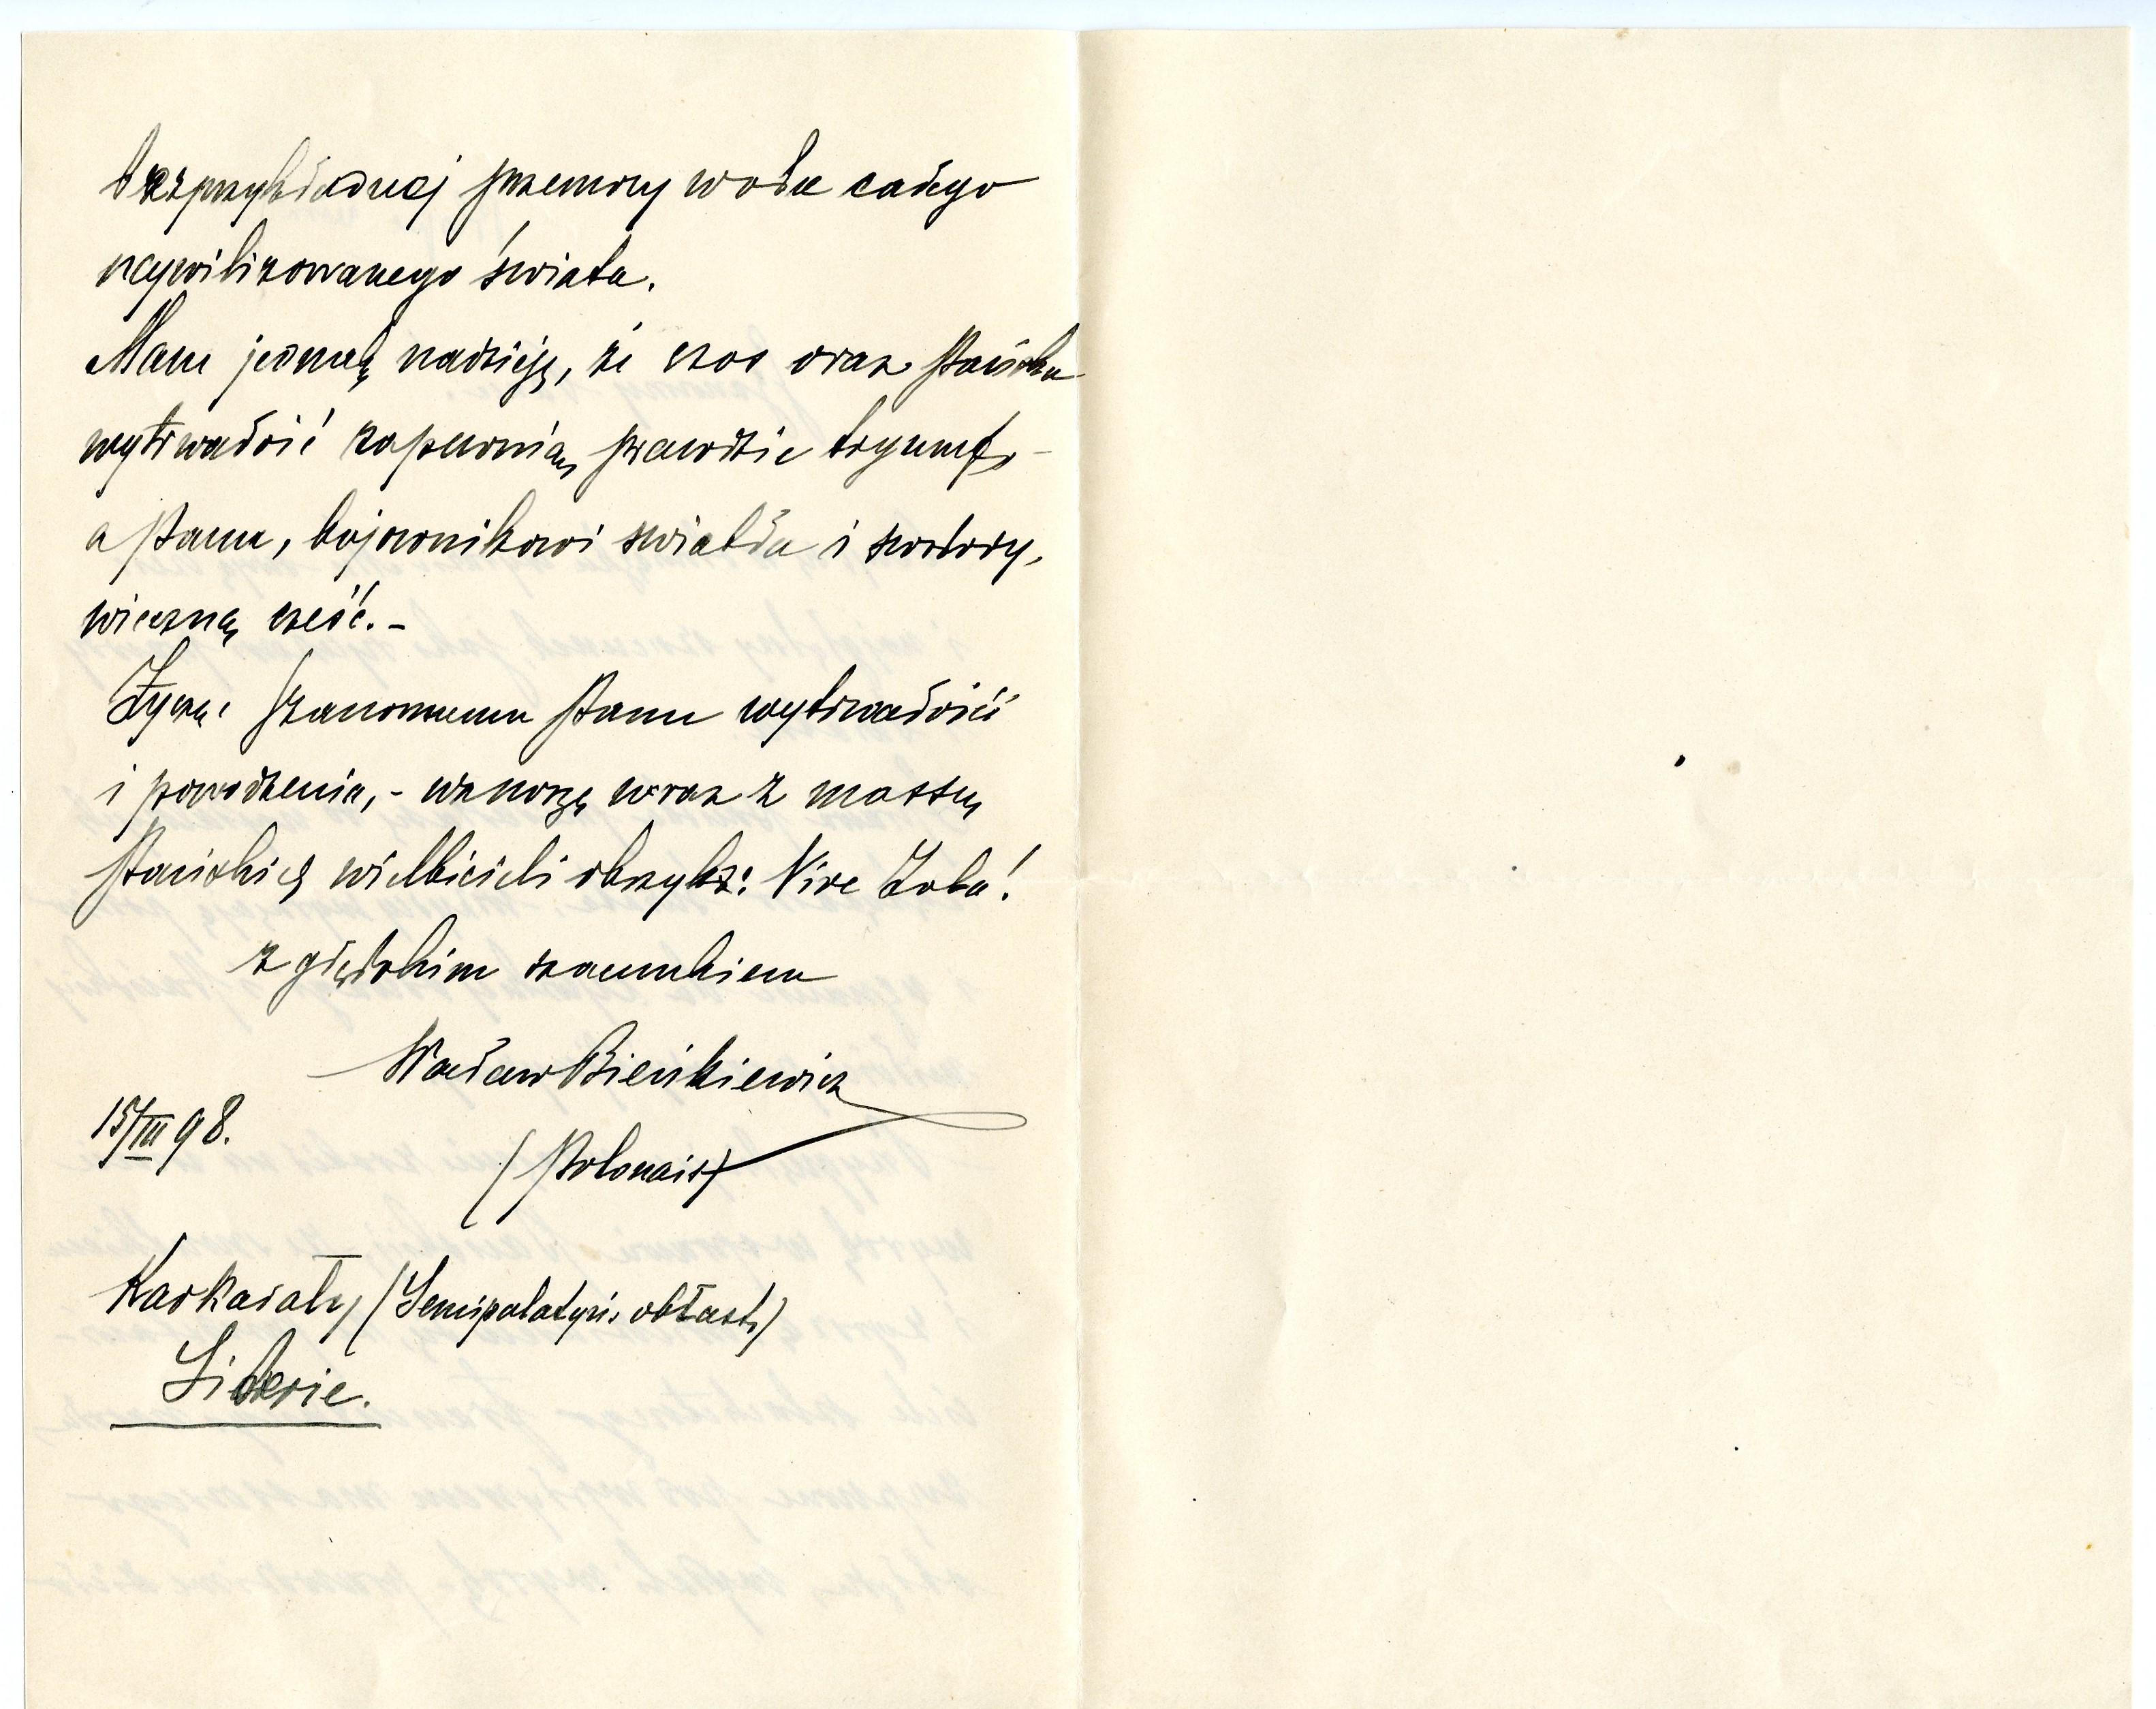 bezprzykładnej przemocy wobec całego
ucywilizowanego świata.
Mam jednak nadzieję, że czas oraz Pańska
wytrwałość zapewnią prawdzie tryumf, –
a Panu, bojownikowi światła i swobody,
wieczną cześć. –
Życząc Szanownemu Panu wytrwałości
i powodzenia, – wznoszę wraz z massą
Pańskich wielbicieli okrzyk: Vive Zola!
z głębokim szacunkiem
Wacław Bieńkiewicz
15/III 98.
(Polonais)
Karkarały, (Semipałatyńs. obłast')
Siberie.